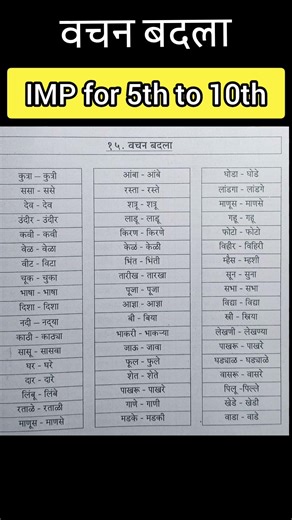 वचन बदला
IMP for 5th to 10th
१५. वचन बदला
कुत्रा – कुत्री
ससा - ससे
देव – देव
उंदीर - उंदीर
कवी – कवी
वेळ - वेळा
वीट – विटा
चूक - चुका
भाषा - भाषा
दिशा - दिशा
नदी – नद्या
काठी – काठ्या
सासू - सासवा
घर - घरे
दार - दारे
लिंबू - लिंबे
रताळे - रताळी
माणूस - माणसे
आंबा - आंबे
रस्ता - रस्ते
शत्रू - शत्रू
लाडू - लाडू
किरण - किरणे
केळं - केळी
भिंत - भिंती
तारीख - तारखा
पूजा - पूजा
आज्ञा - आज्ञा
बी - बिया
भाकरी - भाकऱ्या
जाऊ - जावा
फूल - फुले
शेत - शेते
पाखरू - पाखरे
गाणे - गाणी
मडके - मडकी
घोडा - घोडे
लांडगा - लांडगे
माणूस - माणसे
गहू - गहू
फोटो - फोटो
विहीर - विहिरी
म्हैस - म्हशी
सून - सुना
सभा - सभा
विद्या - विद्या
स्त्री - स्त्रिया
लेखणी - लेखण्या
पाखरू - पाखरे
घड्याळ - घड्याळे
वासरू - वासरे
पिलू -पिल्ले
खेडे - खेडी
वाडा - वाडे